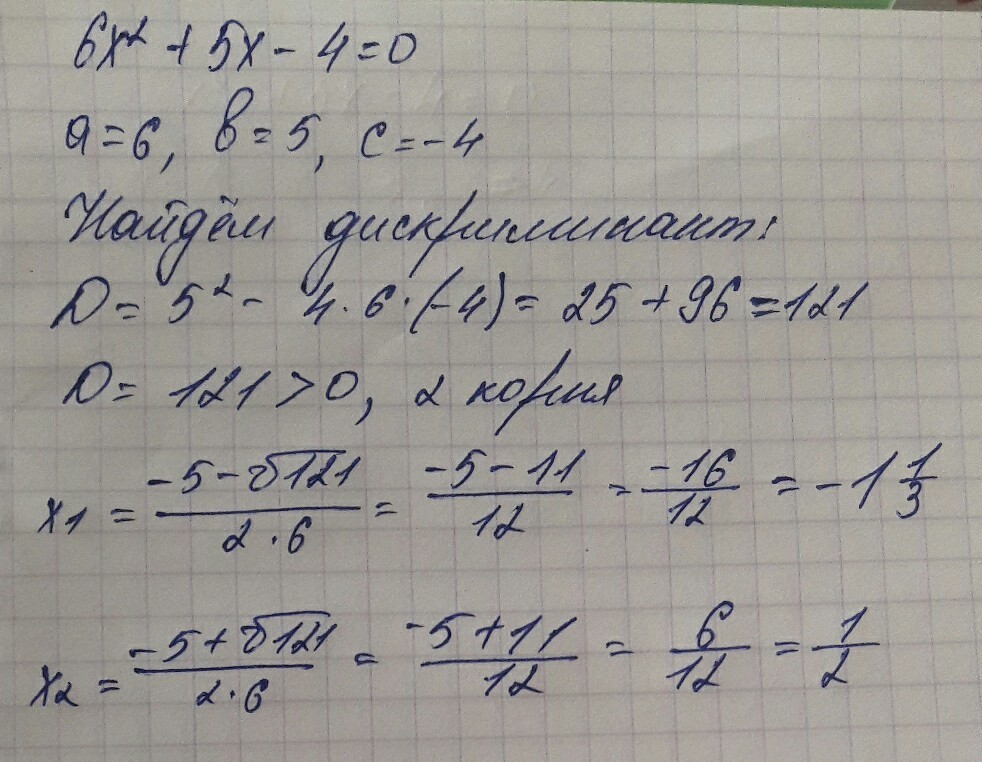 6x² + 5x - 4 = 0
a = 6, b = 5, c = -4
Найдём дискриминант:
D = 5² - 4 · 6 · (-4) = 25 + 96 = 121
D = 121 > 0, 2 корня
x₁ = (-5 - √121)/(2 · 6) = (-5 - 11)/12 = -16/12 = -1 1/3
x₂ = (-5 + √121)/(2 · 6) = (-5 + 11)/12 = 6/12 = 1/2